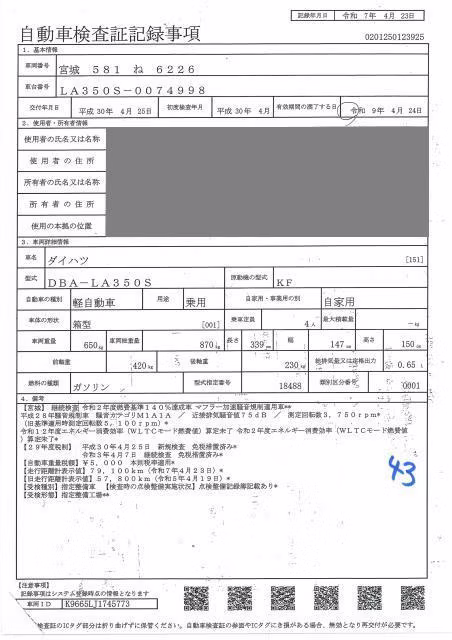 記録年月日 令和 7年 4月 23日
自動車検査証記録事項 0201250123925
1．基本情報
車両番号 宮城 581 ね 6226
車台番号 LA350S-0074998
交付年月日 平成30年 4月 25日 初度検査年月 平成30年 4月 有効期間の満了する日 令和 9年 4月 24日
2．使用者・所有者情報
使用者の氏名又は名称
使用者の住所
所有者の氏名又は名称
所有者の住所
使用の本拠の位置
3．車両詳細情報
車名 ダイハツ [151]
型式 DBA-LA350S 原動機の型式 KF
自動車の種別 軽自動車 用途 乗用 自家用・事業用の別 自家用
車体の形状 箱型 [001] 乗車定員 4人 最大積載量 －kg
車両重量 650kg 車両総重量 870kg 長さ 339cm 幅 147cm 高さ 150cm
前軸重 420kg 後軸重 230kg 総排気量又は定格出力 0.65 L
燃料の種類 ガソリン 型式指定番号 18488 類別区分番号 0001
4．備考
【宮城】 継続検査 令和2年度燃費基準140%達成車 マフラー加速騒音規制適用車**
平成28年騒音規制車 騒音カテゴリM1A1A ／ 近接排気騒音値75dB ／ 測定回転数3，750rpm*
(旧基準適用時測定回転数5，100rpm)*
令和12年度エネルギー消費効率(WLTCモード燃費値)算定未了 令和2年度エネルギー消費効率(WLTCモード燃費値
)算定未了*
【29年度税制】 平成30年4月25日 新規検査 免税措置済み*
令和3年4月7日 継続検査 免税措置済み*
【自動車重量税額】¥5，000 本則税率適用*
【走行距離計表示値】79，100km(令和7年4月23日)*
【旧走行距離計表示値】57，800km(令和5年4月19日)*
【受検種別】指定整備車 【検査時の点検整備実施状況】点検整備記録簿記載あり*
【受検形態】指定整備工場**
43
【注意事項】
記録事項はシステム登録時点の情報となります
車両ID K9665LJ1745773
車検証のICタグ部分は折り曲げずに保管ください。自動車検査証の券面やICタグにき損がある場合、無効となり再交付が必要です。